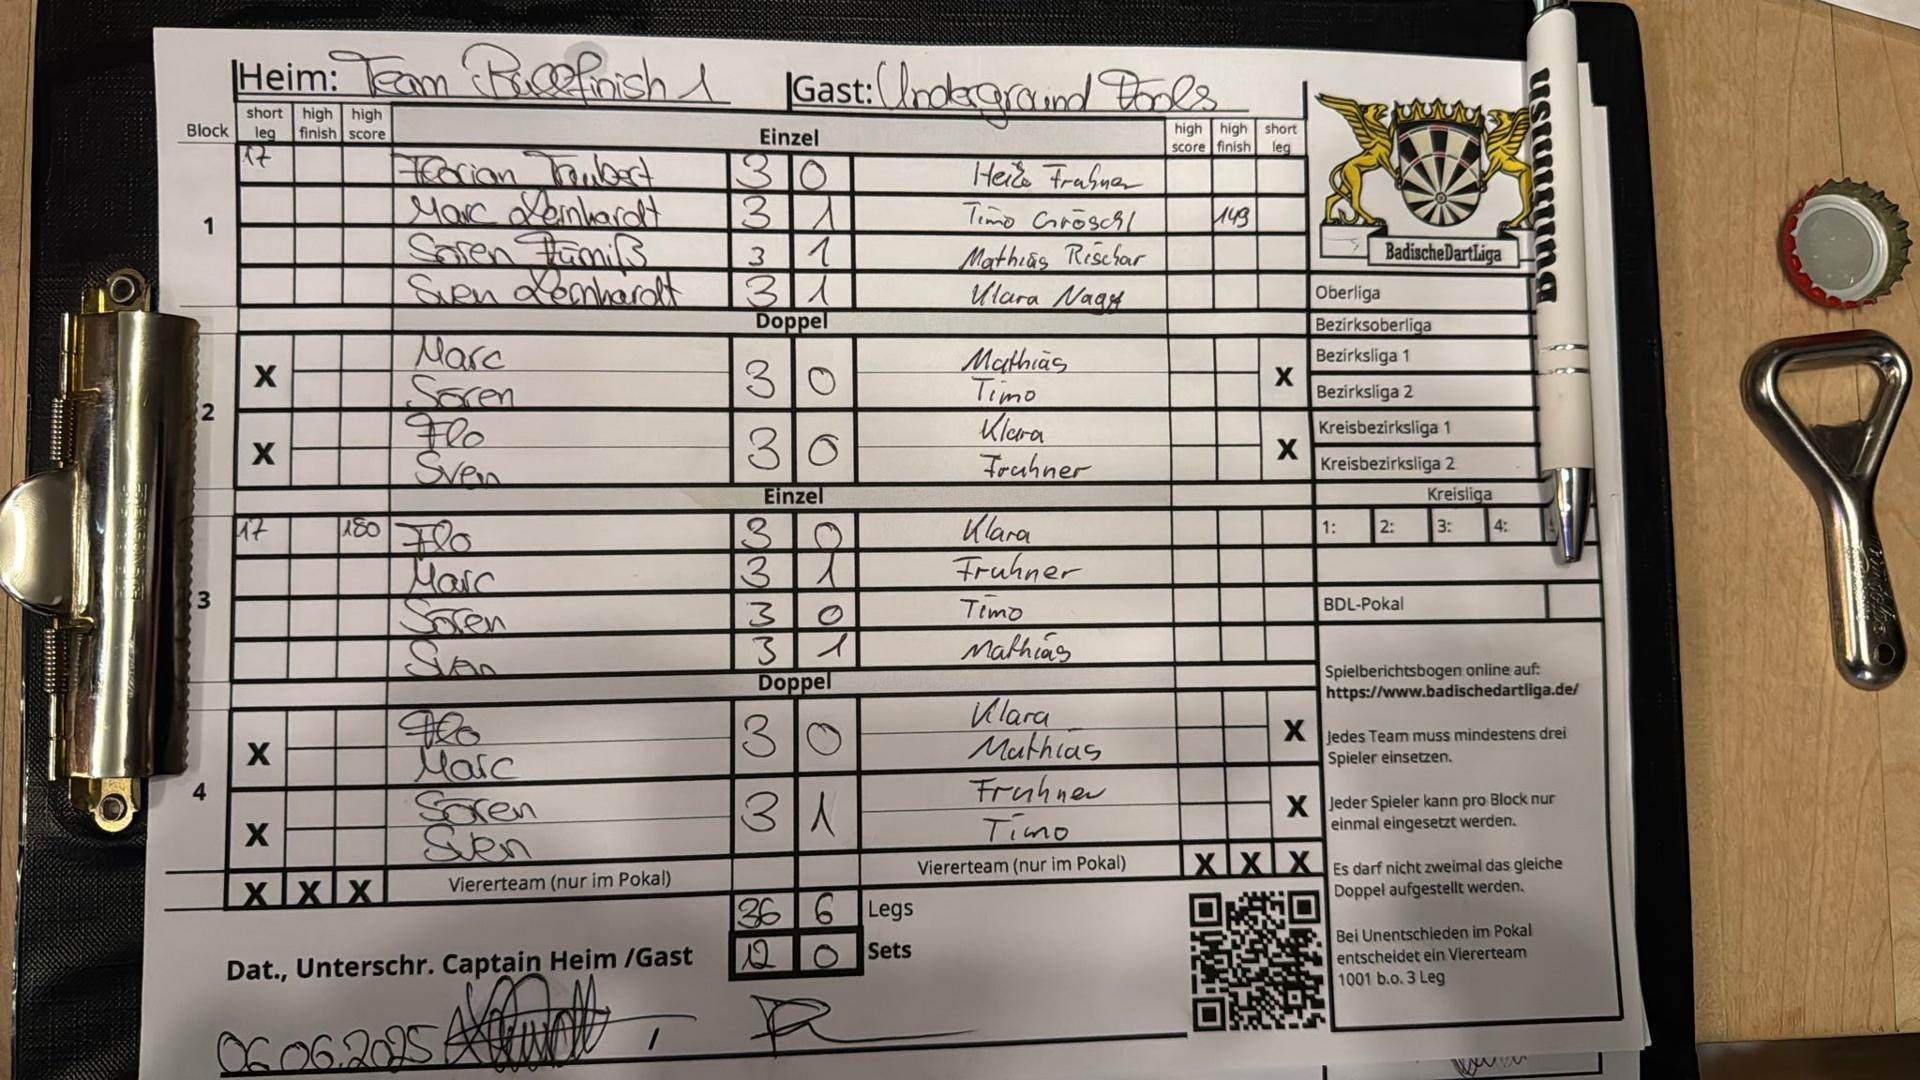 Heim: Team Bullfinish 1 Gast: Underground Fools
Block short leg high finish high score Einzel high score high finish short leg
1
17 Florian Taubert 3 0 Heiko Fruhner
Marc Leonhardt 3 1 Timo Gröschl 149
Sören 3 1 Mathias Rischar
Sven Leonhardt 3 1 Klara Nagy
Doppel
2
X Marc 3 0 Mathias X
Sören Timo
X Flo 3 0 Klara X
Sven Fruhner
Einzel
3
17 180 Flo 3 0 Klara
Marc 3 1 Fruhner
Sören 3 0 Timo
Sven 3 1 Mathias
Doppel
4
X Flo 3 0 Klara X
Marc Mathias
X Sören 3 1 Fruhner X
Sven Timo
X X X Viererteam (nur im Pokal) Viererteam (nur im Pokal) X X X
36 6 Legs
12 0 Sets
Dat., Unterschr. Captain Heim /Gast
06.06.2025
BadischeDartLiga
Oberliga
Bezirksoberliga
Bezirksliga 1
Bezirksliga 2
Kreisbezirksliga 1
Kreisbezirksliga 2
Kreisliga
1: 2: 3: 4:
BDL-Pokal
Spielberichtsbogen online auf:
https://www.badischedartliga.de/
Jedes Team muss mindestens drei
Spieler einsetzen.
Jeder Spieler kann pro Block nur
einmal eingesetzt werden.
Es darf nicht zweimal das gleiche
Doppel aufgestellt werden.
Bei Unentschieden im Pokal
entscheidet ein Viererteam
1001 b.o. 3 Leg